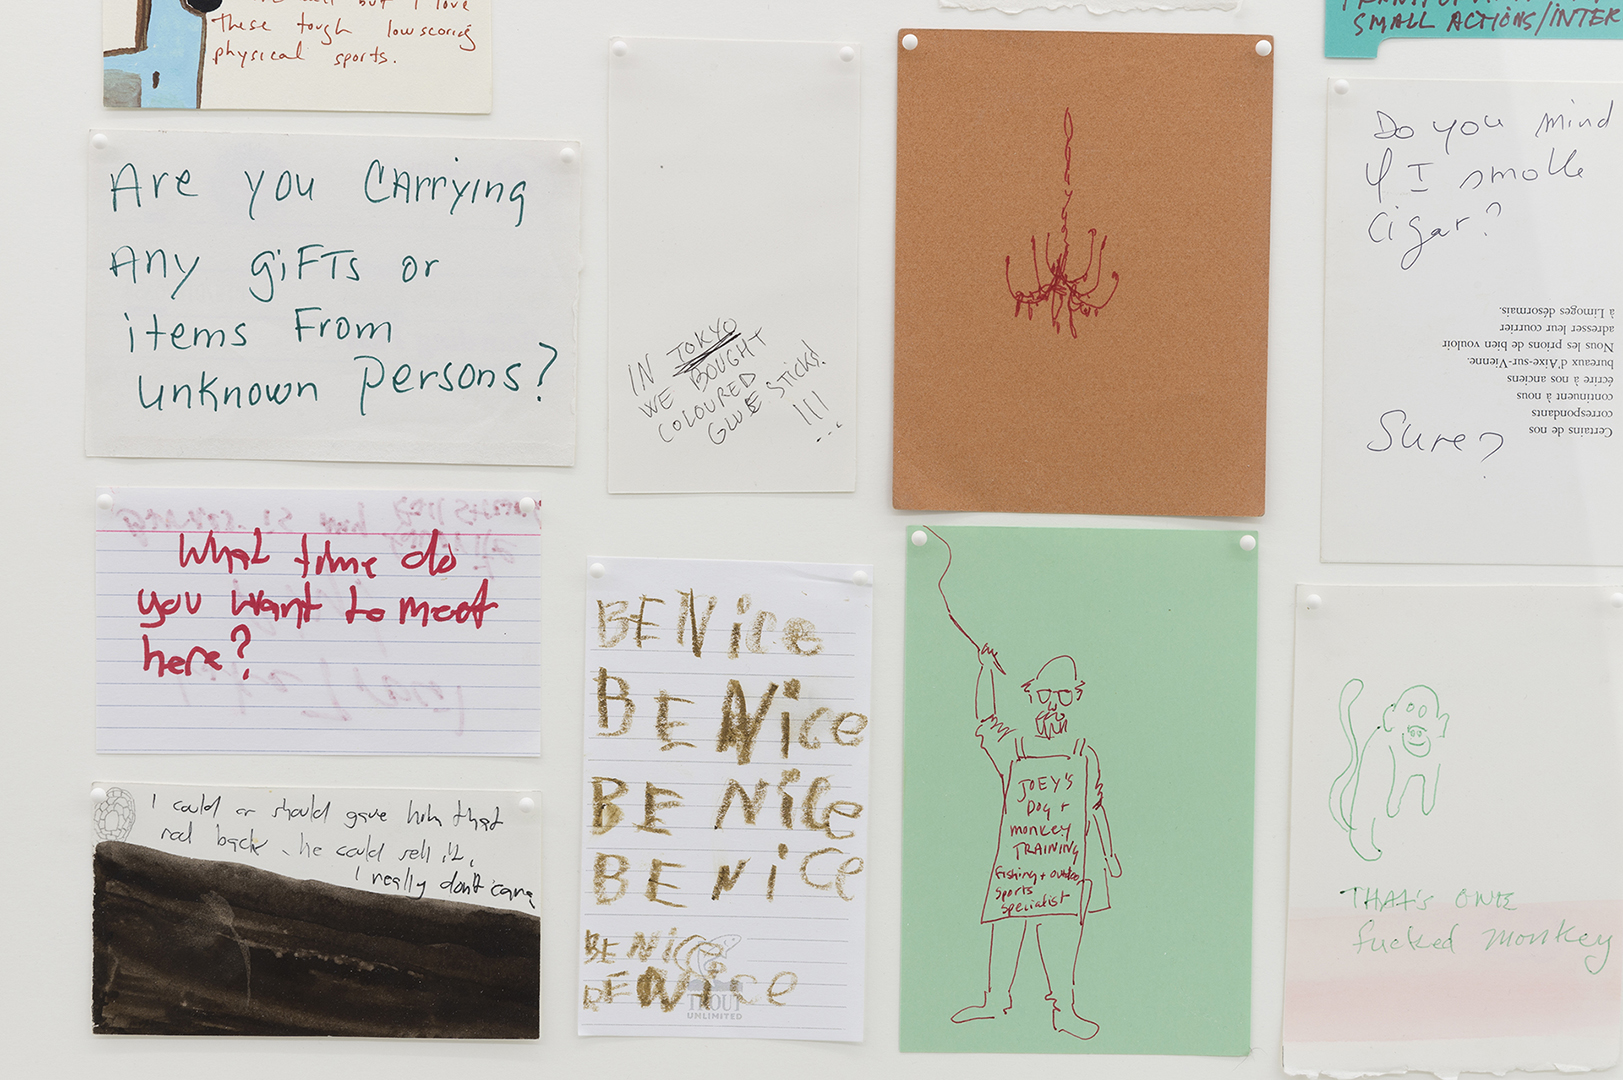 these tough lowscoring
physical sports.
Are you CArrying
Any giFTs or
items From
unknown Persons?
What time do
you want to meet
here?
I could or should gave him that
rod back, he could sell it,
I really don't care
IN TOKYO
WE BOUGHT
COLOURED
GLUE STICKS!
!!!
...
BE Nice
BE Nice
BE Nice
BE Nice
BE Nice
BE Nice
TROUT
UNLIMITED
JOEY'S
Dog +
monkey
TRAINING
fishing + outdoor
sports
specialist
SMALL ACTIONS/INTER
Do you mind
if I smoke
cigar?
Certains de nos
correspondants
continuent à nous
écrire à nos anciens
bureaux d'Aixe-sur-Vienne.
Nous les prions de bien vouloir
adresser leur courrier
à Limoges désormais.
Sure?
THAt's ONE
fucked monkey